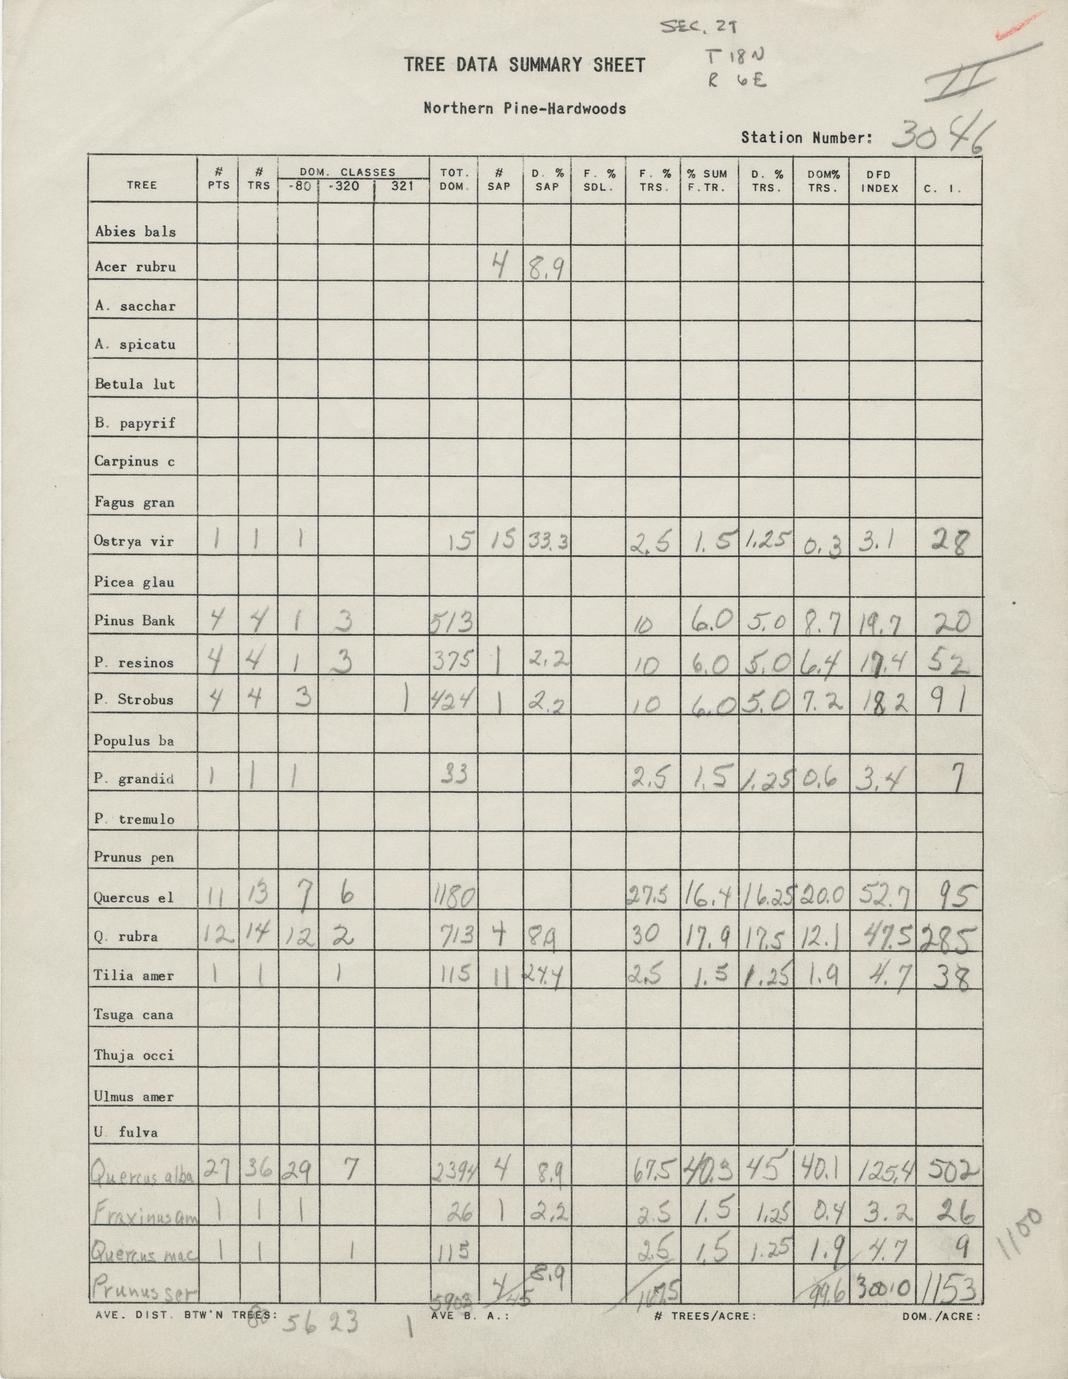 SEC. 29
T 18N
R 6E
II
TREE DATA SUMMARY SHEET
Northern Pine-Hardwoods
Station Number: 3046
TREE # PTS # TRS DOM. CLASSES -80 -320 321 TOT. DOM. # SAP D. % SAP F. % SDL. F. % TRS. % SUM F.TR. D. % TRS. DOM% TRS. DFD INDEX C. I.
Abies bals
Acer rubru 4 8.9
A. sacchar
A. spicatu
Betula lut
B. papyrif
Carpinus c
Fagus gran
Ostrya vir 1 1 1 15 15 33.3 2.5 1.5 1.25 0.3 3.1 28
Picea glau
Pinus Bank 4 4 1 3 513 10 6.0 5.0 8.7 19.7 20
P. resinos 4 4 1 3 375 1 2.2 10 6.0 5.0 6.4 17.4 52
P. Strobus 4 4 3 1 424 1 2.2 10 6.0 5.0 7.2 18.2 91
Populus ba
P. grandid 1 1 1 33 2.5 1.5 1.25 0.6 3.4 7
P. tremulo
Prunus pen
Quercus el 11 13 7 6 1180 27.5 16.4 16.25 20.0 52.7 95
Q. rubra 12 14 12 2 713 4 8.9 30 17.9 17.5 12.1 47.5 285
Tilia amer 1 1 1 115 11 24.4 2.5 1.5 1.25 1.9 4.7 38
Tsuga cana
Thuja occi
Ulmus amer
U. fulva
Quercus alba 27 36 29 7 2394 4 8.9 67.5 40.3 45 40.1 125.4 502
Fraxinus am 1 1 1 26 1 2.2 2.5 1.5 1.25 0.4 3.2 26
Quercus mac 1 1 1 115 2.5 1.5 1.25 1.9 4.7 9
1100
Prunus ser 4 8.9
5903 45 167.5 99.6 300.0 1153
AVE. DIST. BTW'N TREES: AVE B. A.: # TREES/ACRE: DOM./ACRE:
80 56 23 1